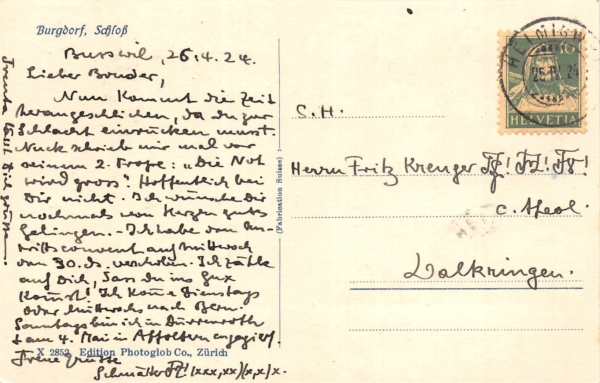 Burgdorf, Schloß
Busswil, 26.4.24.
Lieber Bruder,
Nun kommt die Zeit
herangeschlichen, da du zur
Schlacht einrücken musst.
Muck schrieb mir mal vor
seinem 2. Prope: „Die Not
wird gross". Hoffentlich bei
Dir nicht. Ich wünsche Dir
nochmals von Herzen gutes
Gelingen. - Ich habe den
convent auf Mittwoch
den 30. ds. verschoben. Ich zähle
auf Dich, dass du ins
kommst! Ich komme Dienstags
oder Mittwochs nach Bern.
Sonntags bin ich in Dürrenroth
+ am 4. Mai in Affoltern engagiert.
Treue Grüsse
(xxx,xx)(x,x)x.
lässt Dich grüssen.
X 2852 Edition Photoglob Co., Zürich
(Fabrication Suisse)
HELVETIA
10
26.IV.24
S.H.
Herrn Fritz Krenger
c. theol.
Walkringen.